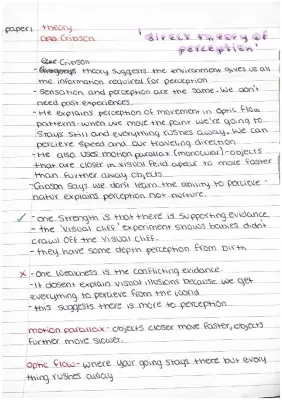 paper1 theory
Gibson
'direct theory of perception'
theory suggests the environment gives us all
the information required for perception
- Sensation and perception are the same. We don't
need past experiences.
- He explains perception of movement in Optic flow
patterns - when we move the point we're going to
stays still and everything rushes away. We can
percieve speed and our traveling direction
- He also uses motion parallax (monocular) - objects
that are closer in visual feild apear to move faster
than further away objects
- Gibson says we dont learn the ability to percieve -
natur explains perception not nurture.
✓ - one strength is that there is supporting evidence.
- the 'visual cliff' experiment shows babies didn't
crawl off the visual cliff.
- they have some depth perception from birth
x - one weakness is the conflicting evidence.
- it dosent explain visual illusions because we get
everything to percieve from the world
- this suggests there is more to perception
motion parallax - objects closer move faster, objects
further move slower.
optic flow - where your going stays there but every
thing rushes away